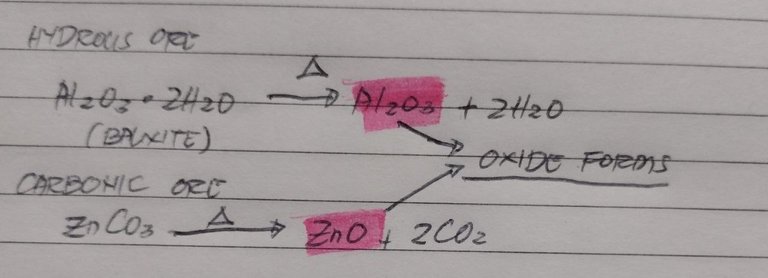 HYDROUS ORE
Δ
Al₂O₃ • 2H₂O → Al₂O₃ + 2H₂O
(BAUXITE)
OXIDE FORMS
CARBONIC ORE
Δ
ZnCO₃ → ZnO + 2CO₂